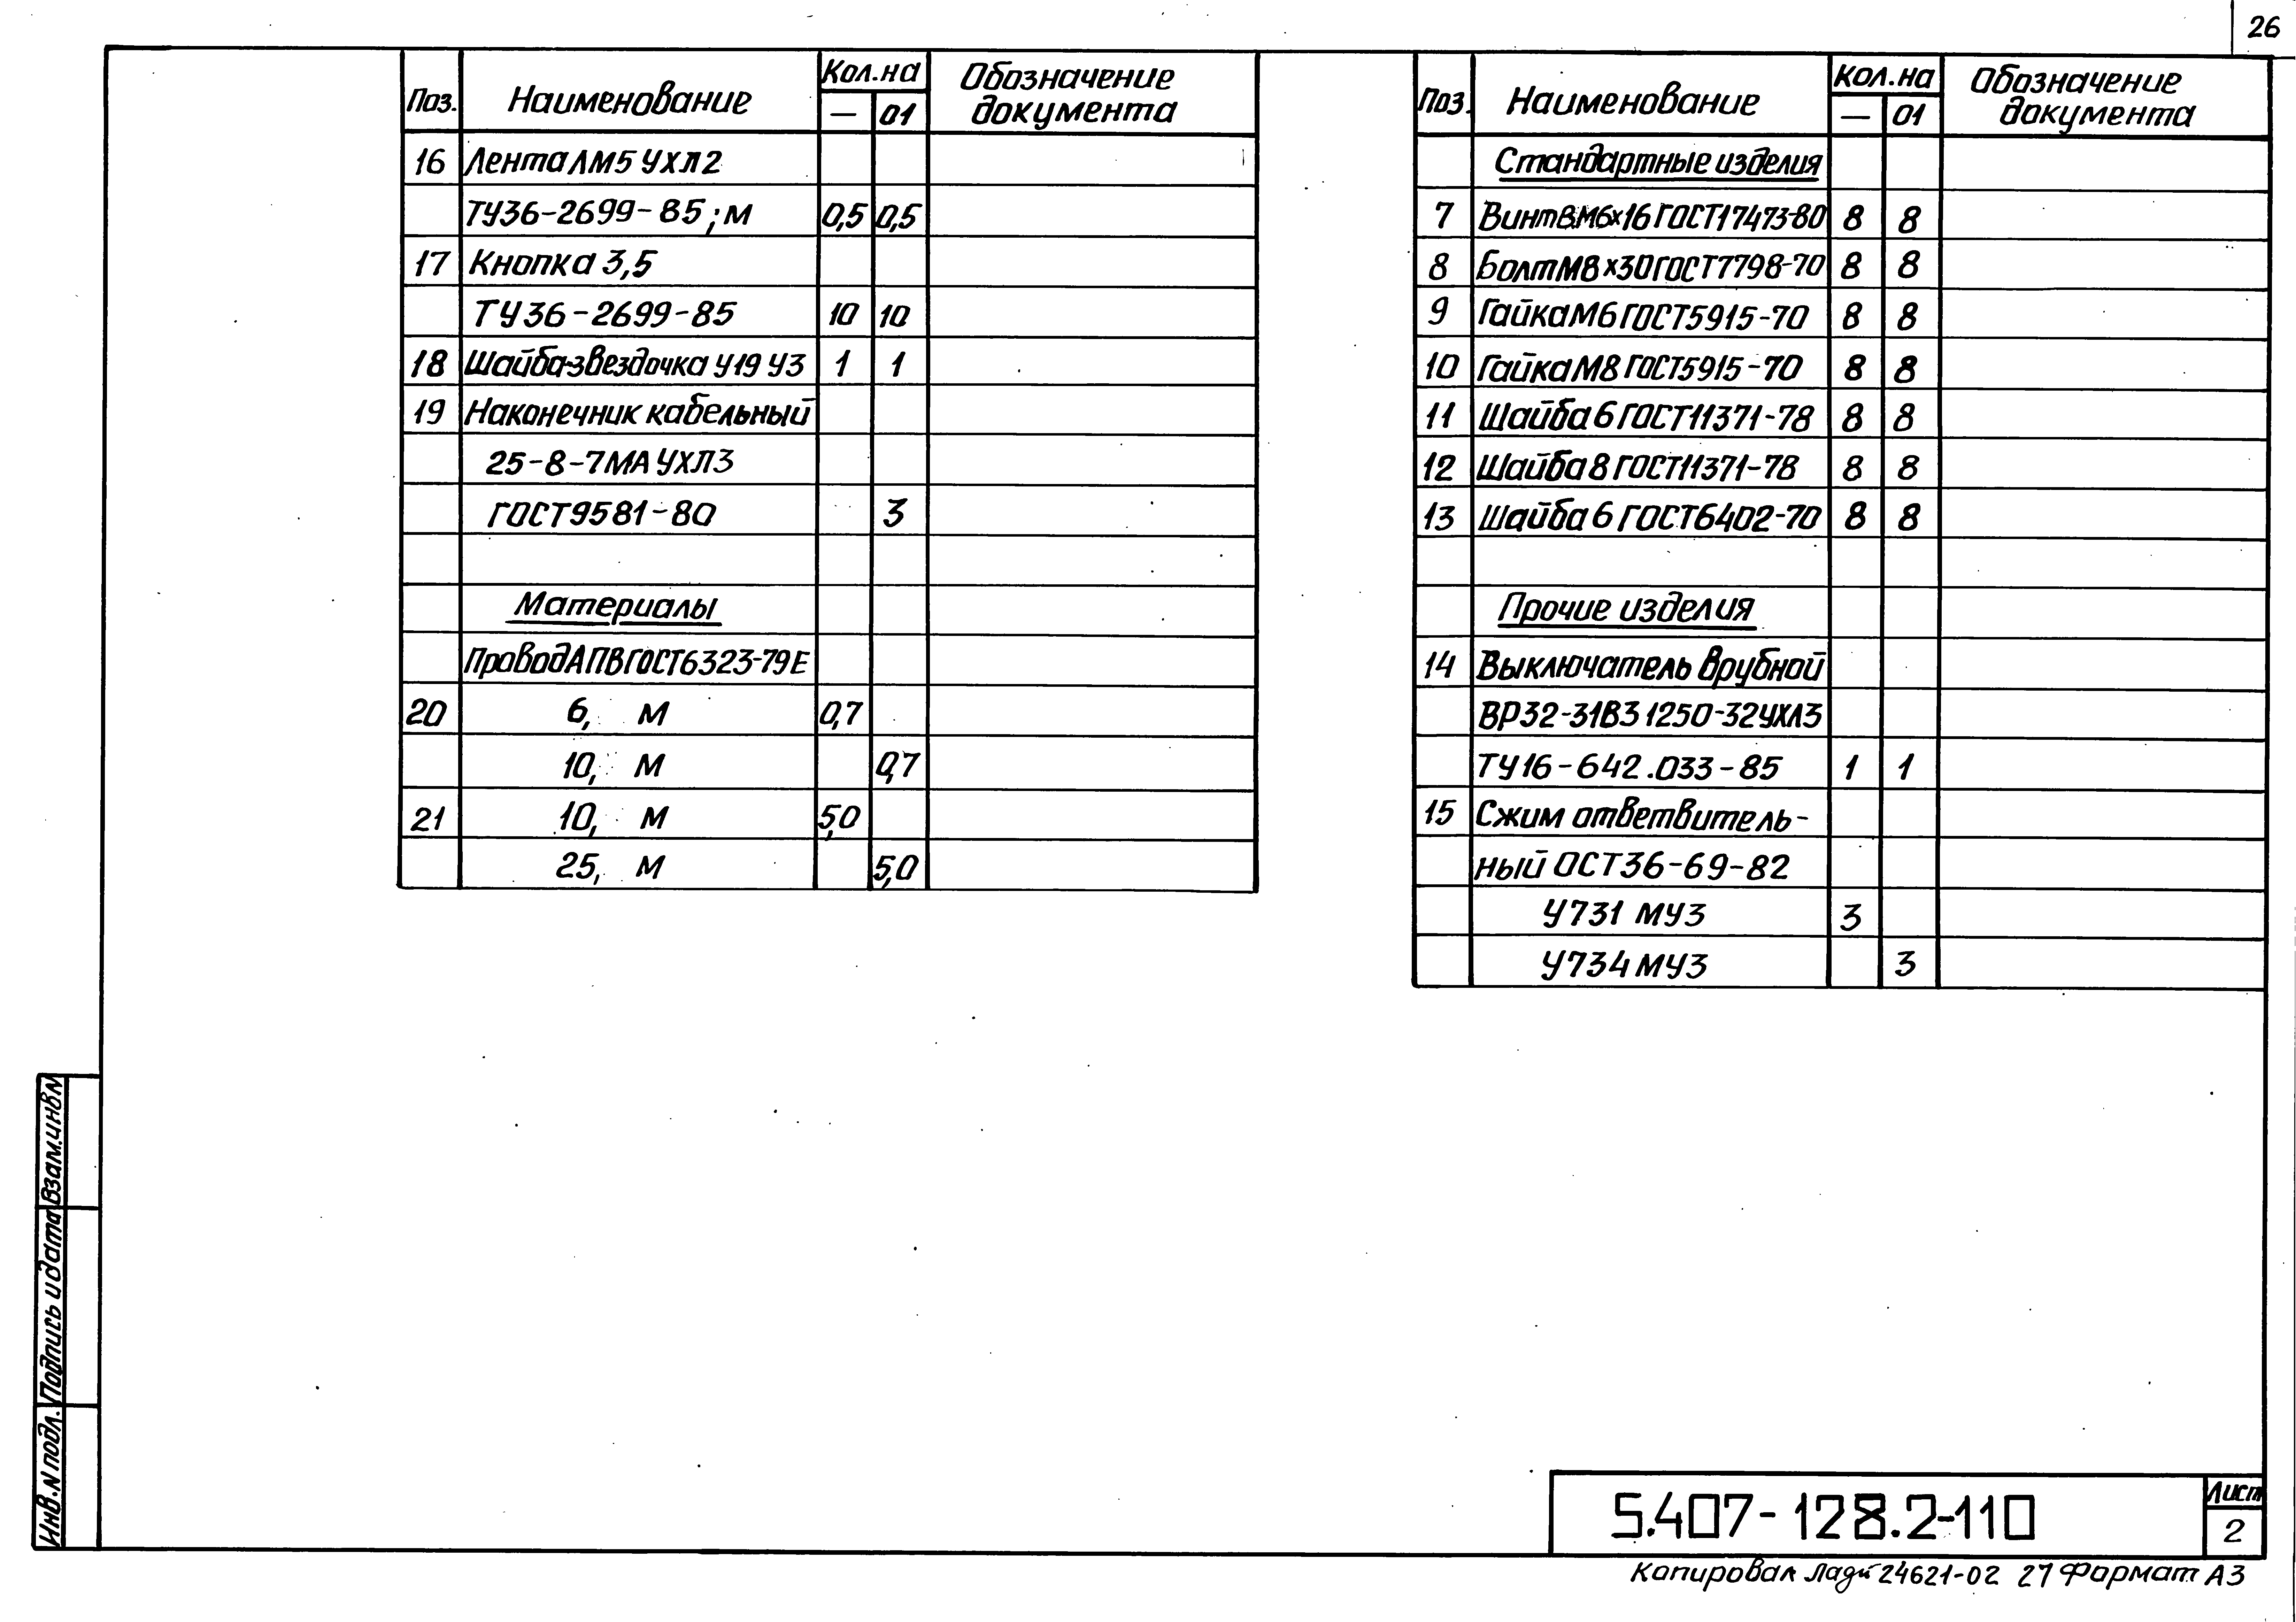 26
Поз. Наименование Кол.на Обозначение документа
— 01
16 Лента ЛМ5 УХЛ2
ТУ36-2699-85; м 0,5 0,5
17 Кнопка 3,5
ТУ36-2699-85 10 10
18 Шайба-звездочка У19 У3 1 1
19 Наконечник кабельный
25-8-7МА УХЛ3
ГОСТ9581-80 3
Материалы
Провод АПВ ГОСТ6323-79Е
20 6, м 0,7
10, м 0,7
21 10, м 5,0
25, м 5,0
Поз. Наименование Кол.на Обозначение документа
— 01
Стандартные изделия
7 Винт В.М6х16 ГОСТ17473-80 8 8
8 Болт М8х30 ГОСТ7798-70 8 8
9 Гайка М6 ГОСТ5915-70 8 8
10 Гайка М8 ГОСТ5915-70 8 8
11 Шайба 6 ГОСТ11371-78 8 8
12 Шайба 8 ГОСТ11371-78 8 8
13 Шайба 6 ГОСТ6402-70 8 8
Прочие изделия
14 Выключатель врубной
ВР32-31В31250-32УХЛ3
ТУ16-642.033-85 1 1
15 Сжим ответвитель-
ный ОСТ36-69-82
У731 МУ3 3
У734 МУ3 3
Инв.N подл. Подпись и дата Взам.инв N
5.407-128.2-110
Лист
2
Копировал 24621-02 27 Формат А3